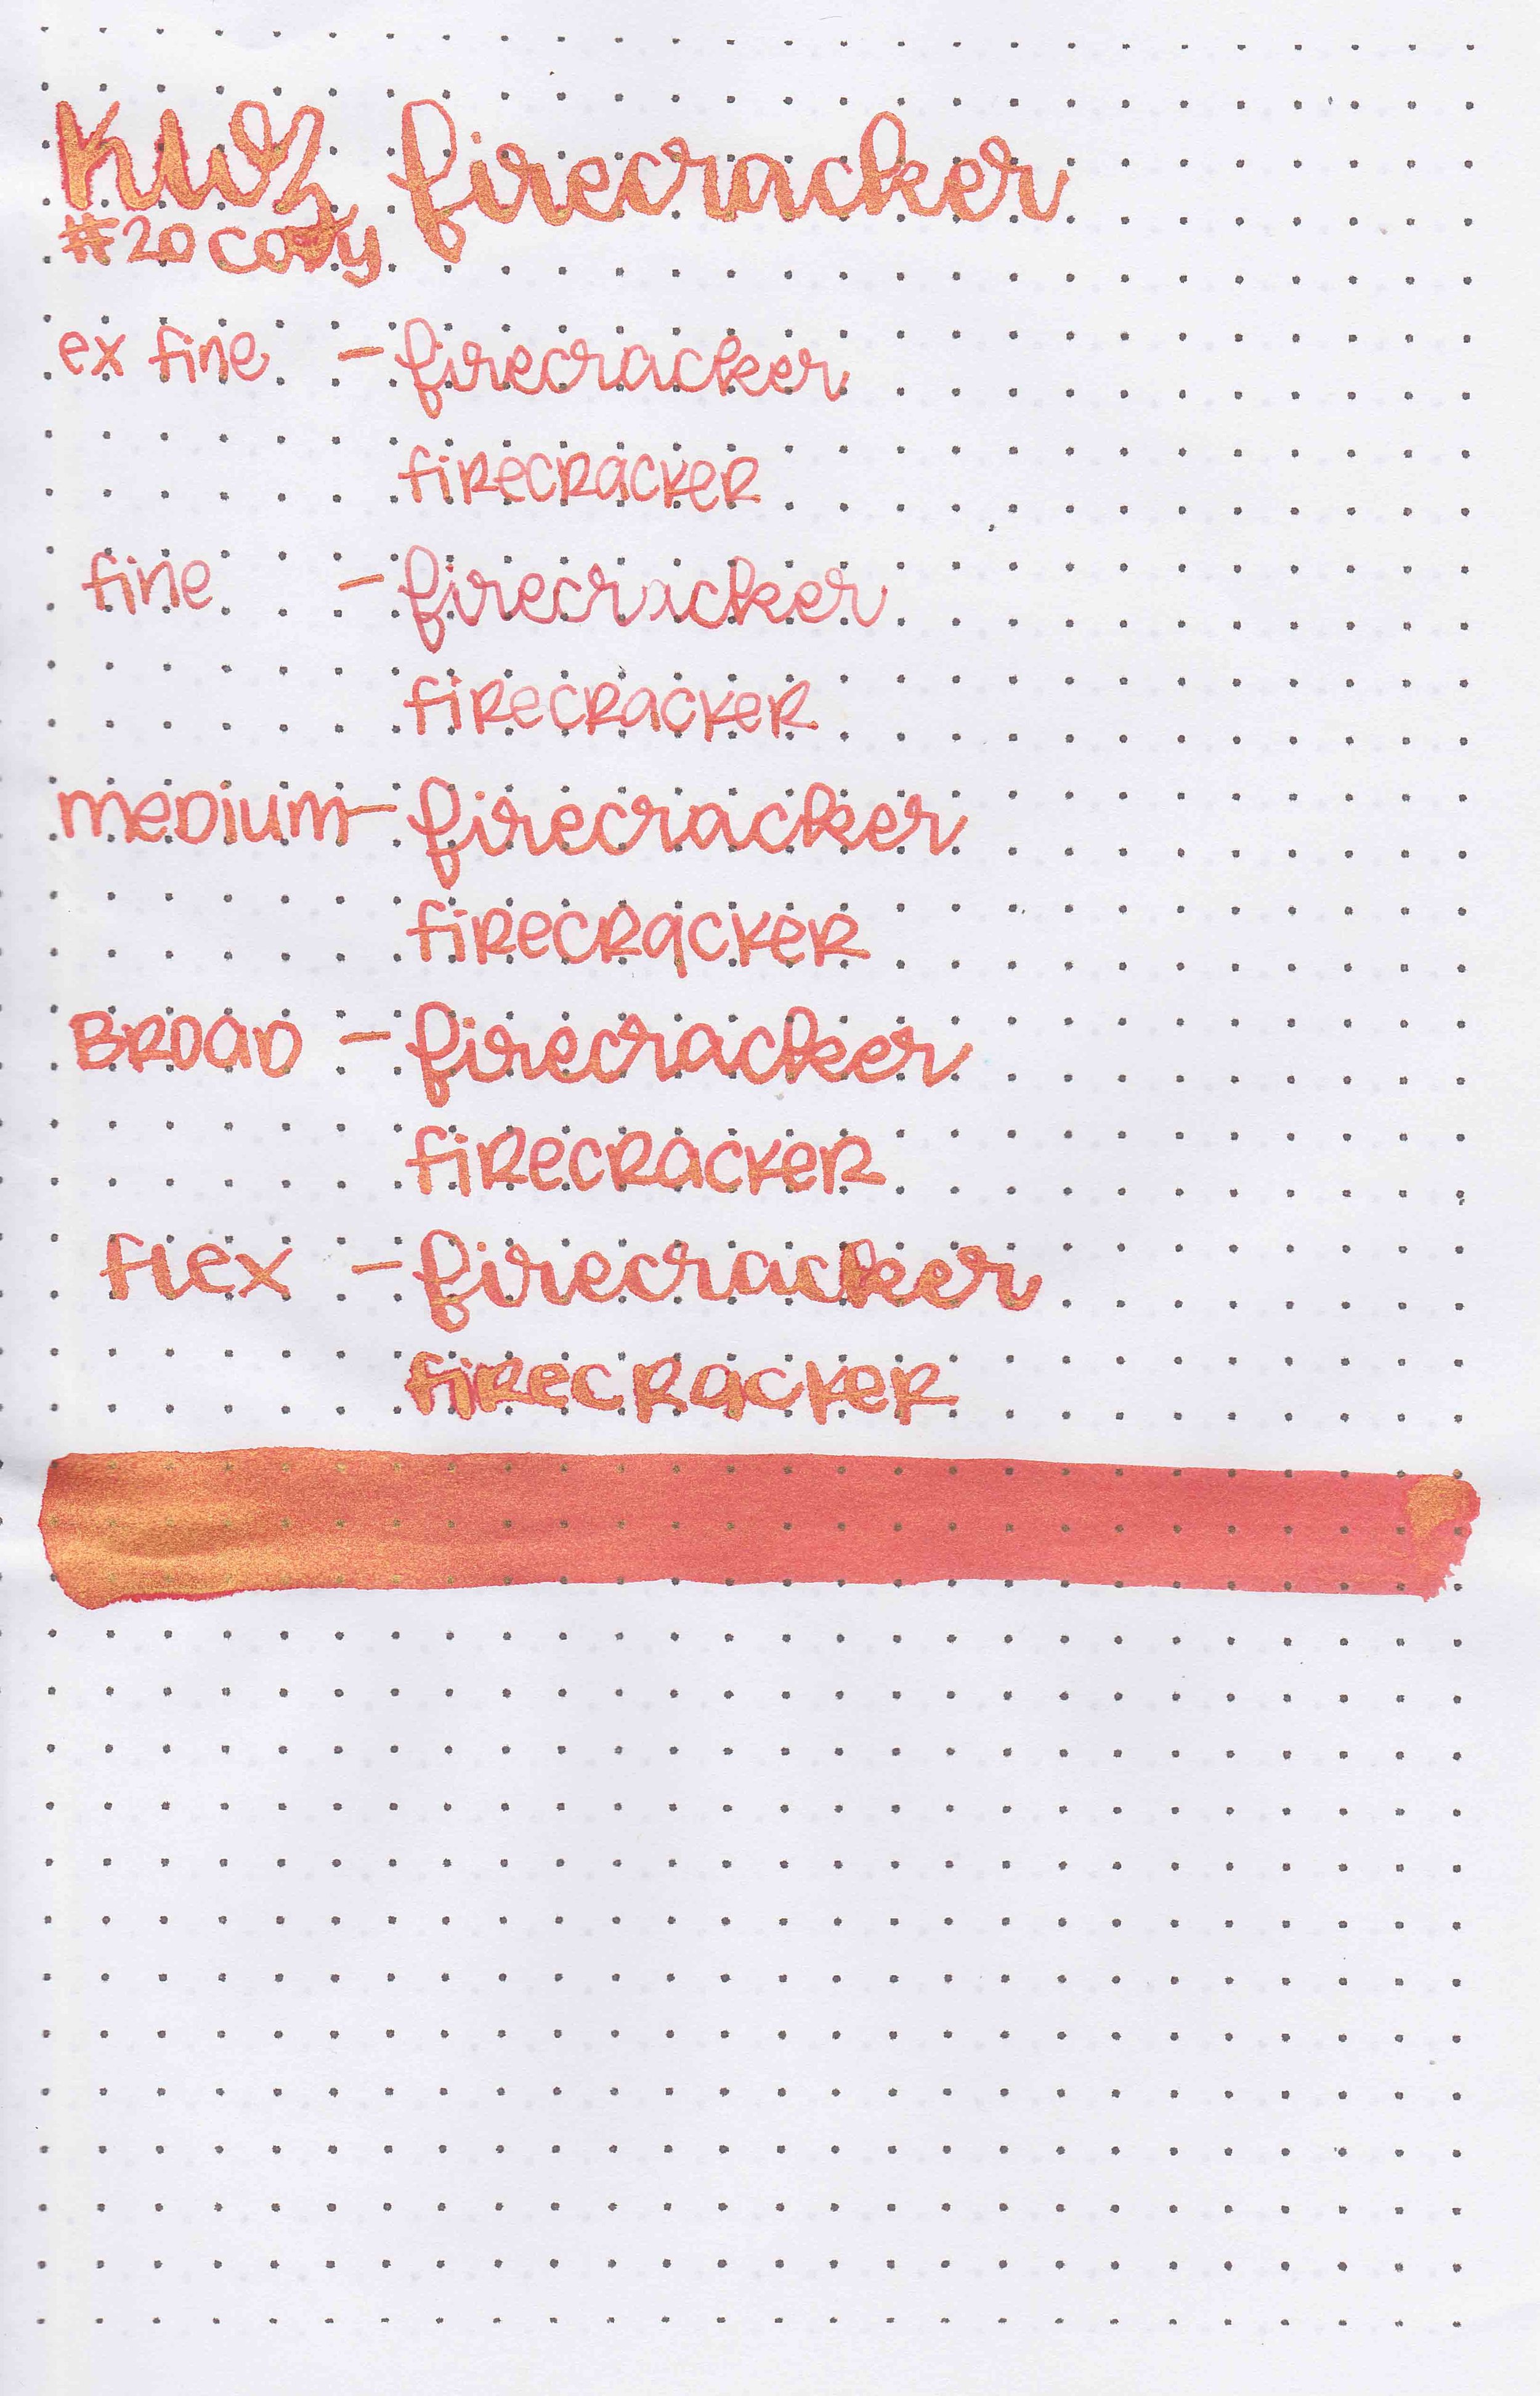 KWZ firecracker
#20 copy
ex fine - firecracker
fireCRacKeR
fine - firecracker
fiReCRacKeR
meDium - firecracker
fiReCRacKeR
BROaD - firecracker
fiReCRacKeR
flex - firecracker
fiReCRacKeR